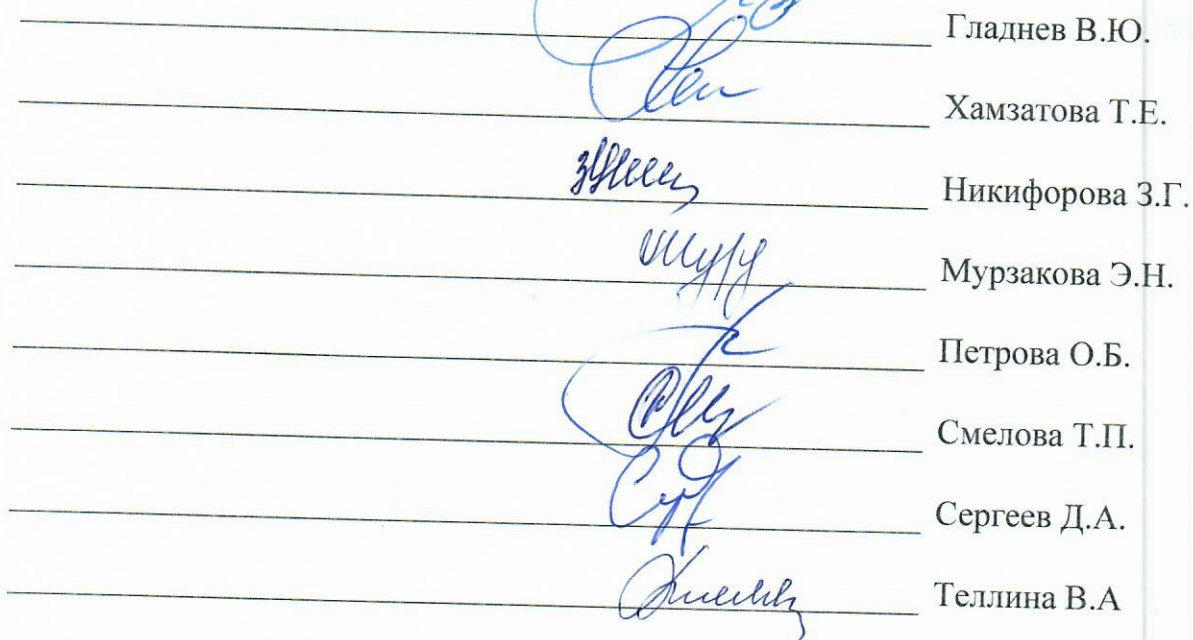 Гладнев В.Ю.
Хамзатова Т.Е.
Никифорова З.Г.
Мурзакова Э.Н.
Петрова О.Б.
Смелова Т.П.
Сергеев Д.А.
Теллина В.А